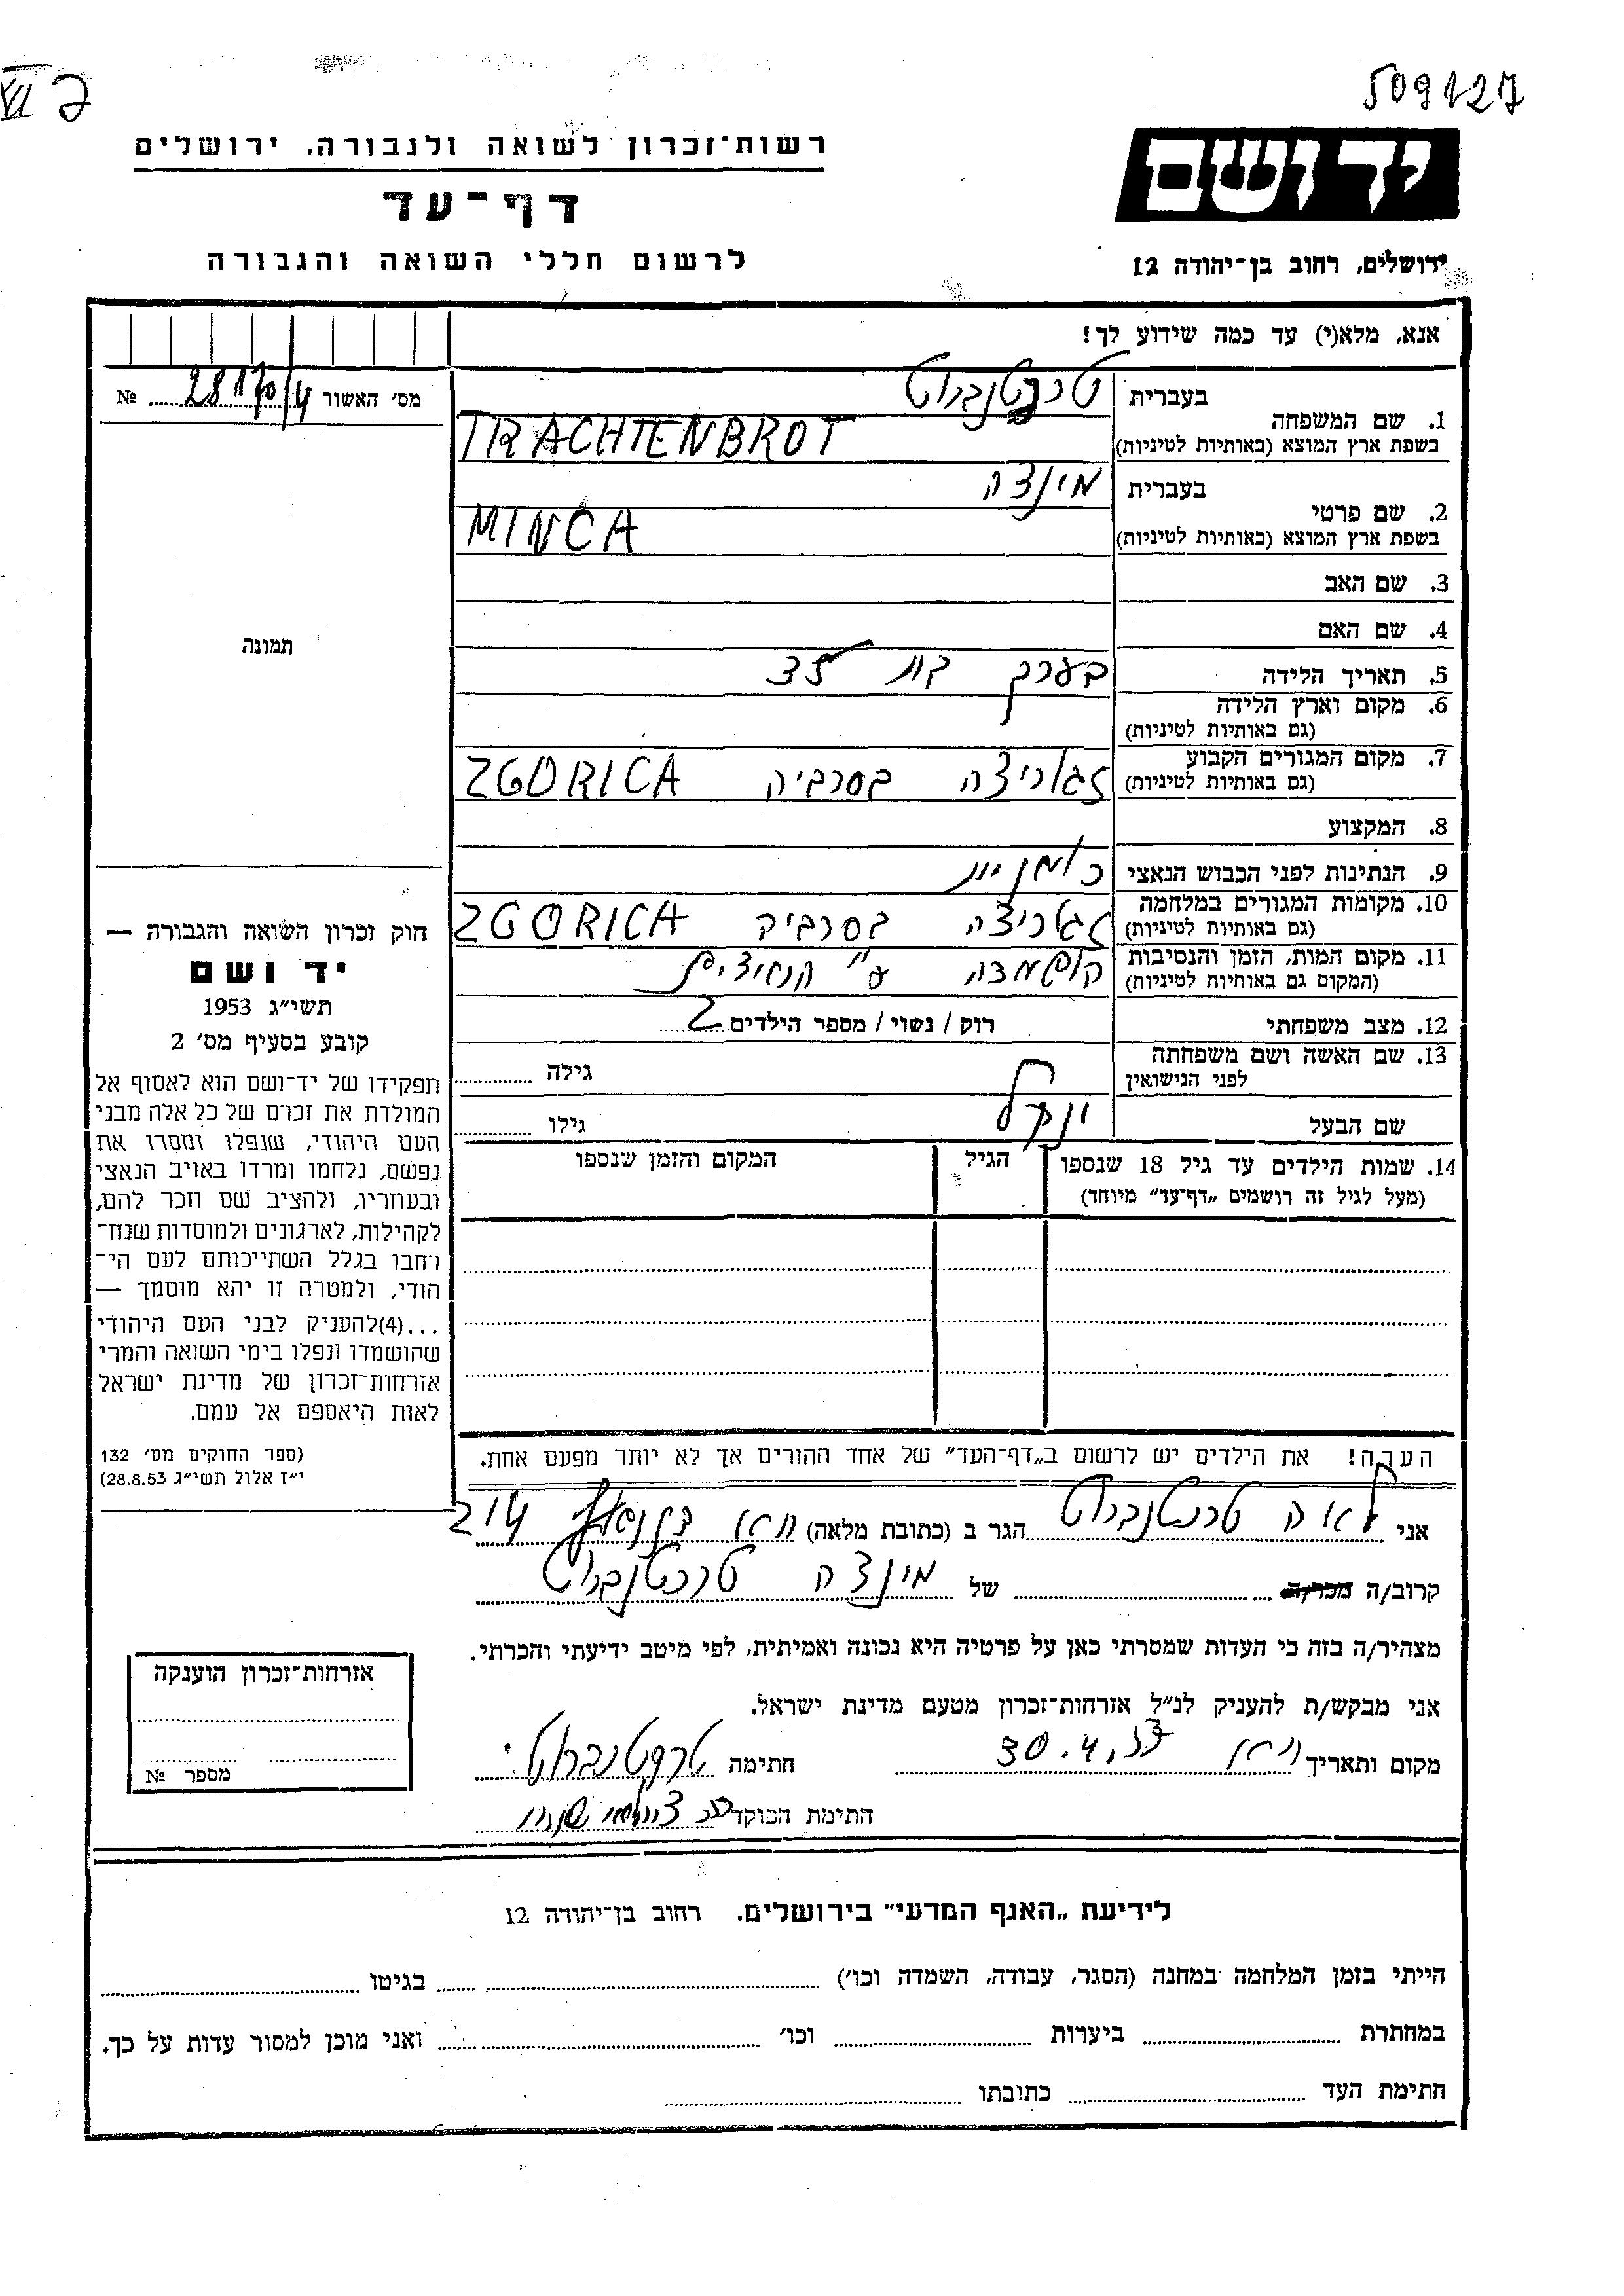 509127
VI ל
יד ושם
רשות־זכרון לשואה ולגבורה, ירושלים
דף־עד
לרשום חללי השואה והגבורה
ירושלים, רחוב בן־יהודה 12
אנא, מלא(י) עד כמה שידוע לך!
מס׳ האשור № 28170/4
1. שם המשפחה בעברית טרכטנברוט
בשפת ארץ המוצא (באותיות לטיניות) TRACHTENBROT
2. שם פרטי בעברית מינצה
בשפת ארץ המוצא (באותיות לטיניות) MINCA
3. שם האב
4. שם האם
תמונה
5. תאריך הלידה בערך בת 35
6. מקום וארץ הלידה
(גם באותיות לטיניות)
7. מקום המגורים הקבוע זגוריצה בסרביה ZGORICA
(גם באותיות לטיניות)
8. המקצוע
9. הנתינות לפני הכבוש הנאצי רומנית
10. מקומות המגורים במלחמה זגוריצה בסרביה ZGORICA
(גם באותיות לטיניות)
11. מקום המות, הזמן והנסיבות הושמדה ע״י הנאצים
(המקום גם באותיות לטיניות)
12. מצב משפחתי רוק / נשוי / מספר הילדים 2
13. שם האשה ושם משפחתה
לפני הנישואין גילה
שם הבעל ינקל גילו
14. שמות הילדים עד גיל 18 שנספו הגיל המקום והזמן שנספו
(מעל לגיל זה רושמים „דף־עד״ מיוחד)
הערה! את הילדים יש לרשום ב„דף־העד״ של אחד ההורים אך לא יותר מפעם אחת.
חוק זכרון השואה והגבורה —
יד ושם
תשי״ג 1953
קובע בסעיף מס׳ 2
תפקידו של יד־ושם הוא לאסוף אל
המולדת את זכרם של כל אלה מבני
העם היהודי, שנפלו ומסרו את
נפשם, נלחמו ומרדו באויב הנאצי
ובעוזריו, ולהציב שם וזכר להם,
לקהילות, לארגונים ולמוסדות שנח־
רבו בגלל השתייכותם לעם הי־
הודי, ולמטרה זו יהא מוסמך —
...(4)להעניק לבני העם היהודי
שהושמדו ונפלו בימי השואה והמרי
אזרחות־זכרון של מדינת ישראל
לאות היאספם אל עמם.
(ספר החוקים מס׳ 132
י״ז אלול תשי״ג 28.8.53)
אני לאה טרכטנברוט הגר ב (כתובת מלאה) 214
קרוב/ה מכר/ה של מינצה טרכטנברוט
מצהיר/ה בזה כי העדות שמסרתי כאן על פרטיה היא נכונה ואמיתית, לפי מיטב ידיעתי והכרתי.
אני מבקש/ת להעניק לנ״ל אזרחות־זכרון מטעם מדינת ישראל.
מקום ותאריך 30.4. חתימה טרכטנברוט
חתימת הפוקד
אזרחות־זכרון הוענקה
מספר №
לידיעת „האגף המדעי״ בירושלים. רחוב בן־יהודה 12
הייתי בזמן המלחמה במחנה (הסגר, עבודה, השמדה וכו׳) בגיטו
במחתרת ביערות וכו׳ ואני מוכן למסור עדות על כך.
חתימת העד כתובתו